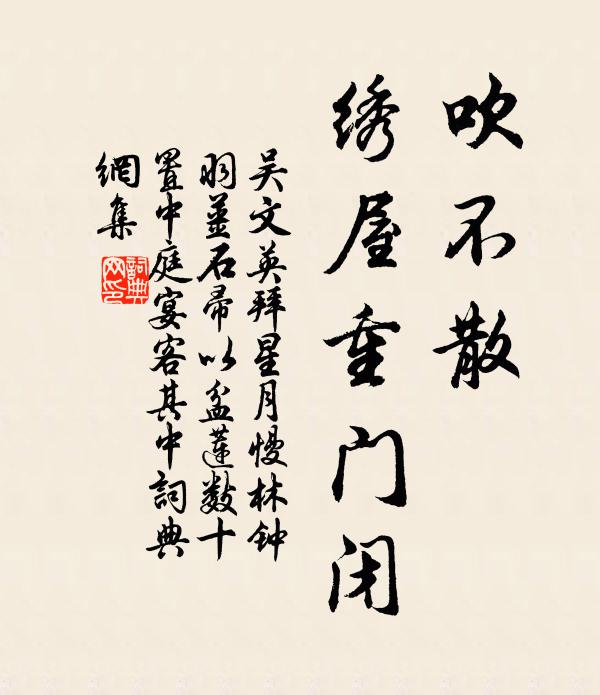 吹不散
绣屋重门闭
吴文英拜星月慢林钟
羽姜石帚以盆莲数十
置中庭宴客其中詞典
網集
詞典网印